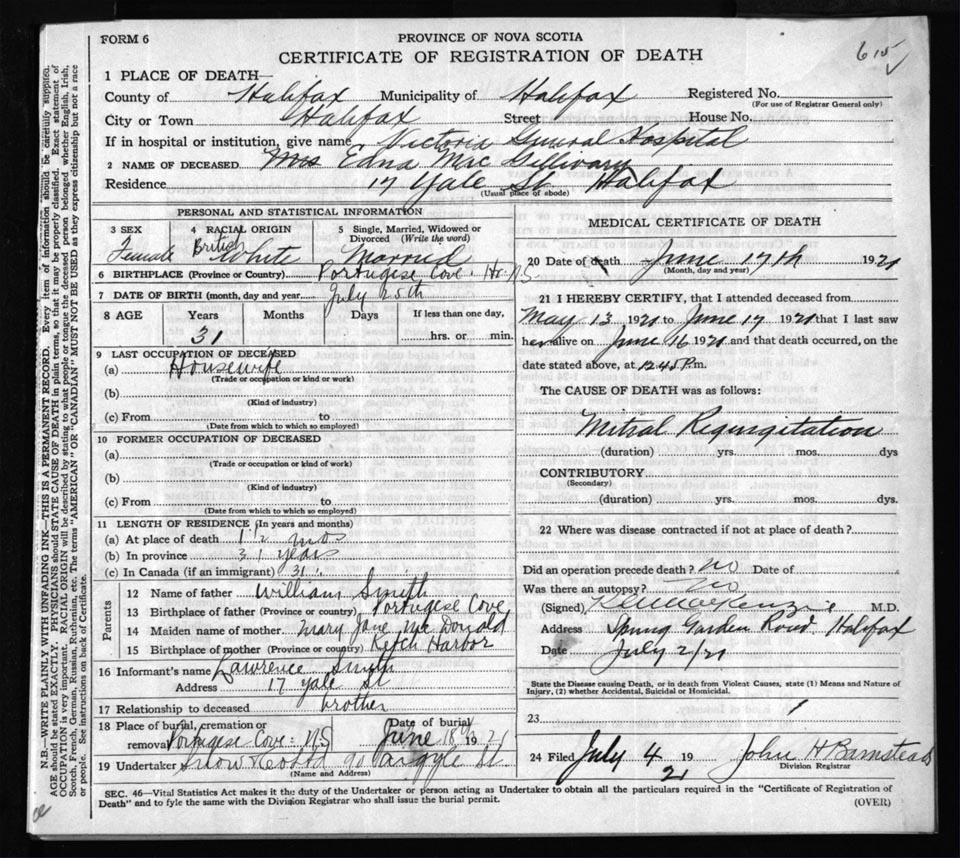 FORM 6
PROVINCE OF NOVA SCOTIA
CERTIFICATE OF REGISTRATION OF DEATH
615
1 PLACE OF DEATH—
County of Halifax Municipality of Halifax Registered No.
(For use of Registrar General only)
City or Town Halifax Street House No.
If in hospital or institution, give name Victoria General Hospital
2 NAME OF DECEASED Mrs Edna Mac Gillivary
Residence 17 Yale St. Halifax
(Usual place of abode)
PERSONAL AND STATISTICAL INFORMATION
3 SEX 4 RACIAL ORIGIN 5 Single, Married, Widowed or Divorced (Write the word)
Female British White Married
6 BIRTHPLACE (Province or Country) Portugese Cove. Hx. N.S
7 DATE OF BIRTH (month, day and year) July 25th
8 AGE Years Months Days If less than one day,
31 hrs. or min.
9 LAST OCCUPATION OF DECEASED
(a) Housewife
(Trade or occupation or kind or work)
(b)
(Kind of industry)
(c) From to
(Date from which to which so employed)
10 FORMER OCCUPATION OF DECEASED
(a)
(Trade or occupation or kind of work)
(b)
(Kind of industry)
(c) From to
(Date from which to which so employed)
11 LENGTH OF RESIDENCE (In years and months)
(a) At place of death 1 1/2 mos
(b) In province 31 years
(c) In Canada (if an immigrant) 31
Parents
12 Name of father William Smith
13 Birthplace of father (Province or country) Portugese Cove
14 Maiden name of mother Mary Jane Mc Donald
15 Birthplace of mother (Province or country) Ketch Harbor
16 Informant's name Lawrence Smith
Address 17 Yale St
17 Relationship to deceased brother
18 Place of burial, cremation or removal Portugese Cove: N.S Date of burial June 18th 1921
19 Undertaker Snow & Co Ltd 90 Argyle St
(Name and Address)
MEDICAL CERTIFICATE OF DEATH
20 Date of death June 17th 1921
(Month, day and year)
21 I HEREBY CERTIFY, that I attended deceased from
May 13 1921 to June 17 1921 that I last saw
her alive on June 16 1921 and that death occurred, on the
date stated above, at 12.45 P.m.
The CAUSE OF DEATH was as follows:
Mitral Regurgitation
(duration) yrs. mos. dys
CONTRIBUTORY
(Secondary)
(duration) yrs. mos. dys.
22 Where was disease contracted if not at place of death?
Did an operation precede death? No Date of
Was there an autopsy? No
(Signed) MacKenzie M.D.
Address Spring Garden Road Halifax
Date July 2/21
State the Disease causing Death, or in death from Violent Causes, state (1) Means and Nature of
Injury, (2) whether Accidental, Suicidal or Homicidal.
23
24 Filed July 4 1921 John H Barnstead
Division Registrar
SEC. 46—Vital Statistics Act makes it the duty of the Undertaker or person acting as Undertaker to obtain all the particulars required in the "Certificate of Registration of
Death" and to fyle the same with the Division Registrar who shall issue the burial permit.
(OVER)
N.B.—WRITE PLAINLY WITH UNFADING INK—THIS IS A PERMANENT RECORD. Every item of information should be carefully supplied.
AGE should be stated EXACTLY. PHYSICIANS should STATE CAUSE OF DEATH in plain terms, so that it may be properly classified. Exact statement of
OCCUPATION is very important. RACIAL ORIGIN will be described by stating to what people or tongue the deceased person belonged whether English, Irish,
Scotch, French, German, Russian, Ruthenian, etc. The terms "AMERICAN" or "CANADIAN" MUST NOT BE USED as they express citizenship but not a race
or people. See instructions on back of Certificate.